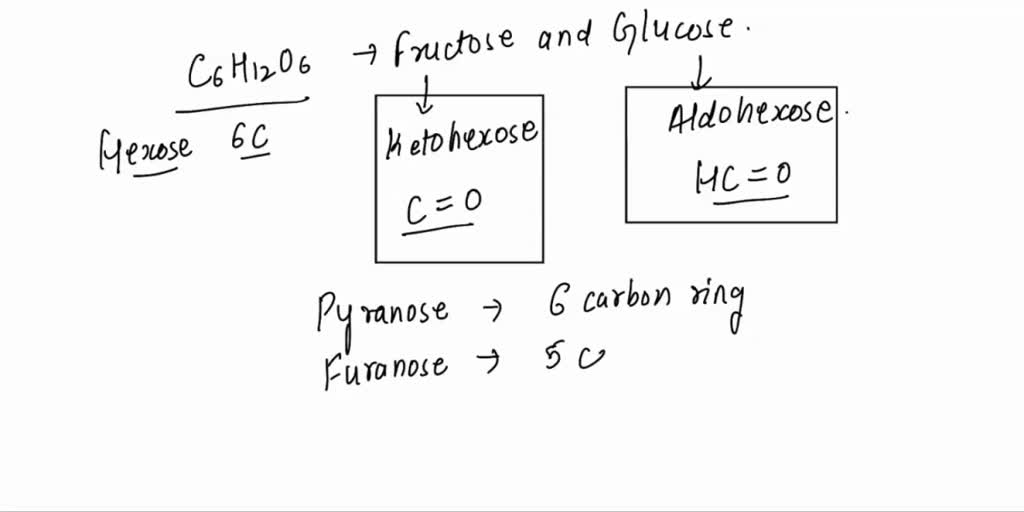 C6H12O6 → Fructose and Glucose.
Hexose 6C
Ketohexose
C = O
Aldohexose.
HC = O
Pyranose → 6 carbon ring
Furanose → 5 C